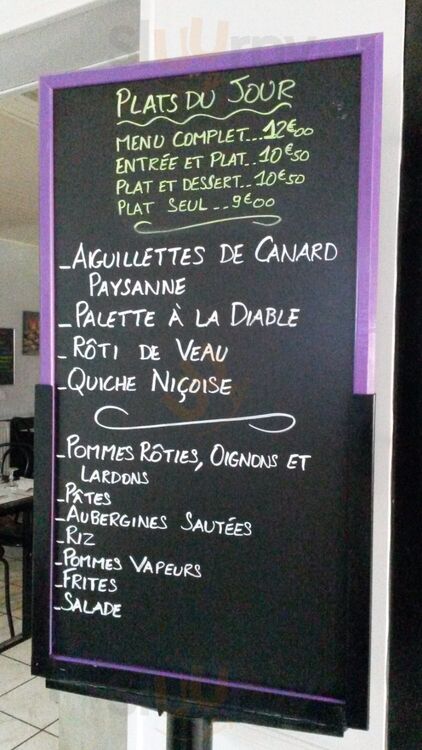 PLATS DU JOUR
MENU COMPLET...12€00
ENTRÉE ET PLAT..10€50
PLAT ET DESSERT..10€50
PLAT SEUL...9€00
_AIGUILLETTES DE CANARD
PAYSANNE
_PALETTE À LA DIABLE
_RÔTI DE VEAU
_QUICHE NIÇOISE
_POMMES RÔTIES, OIGNONS ET
LARDONS
_PÂTES
_AUBERGINES SAUTÉES
_RIZ
_POMMES VAPEURS
_FRITES
_SALADE